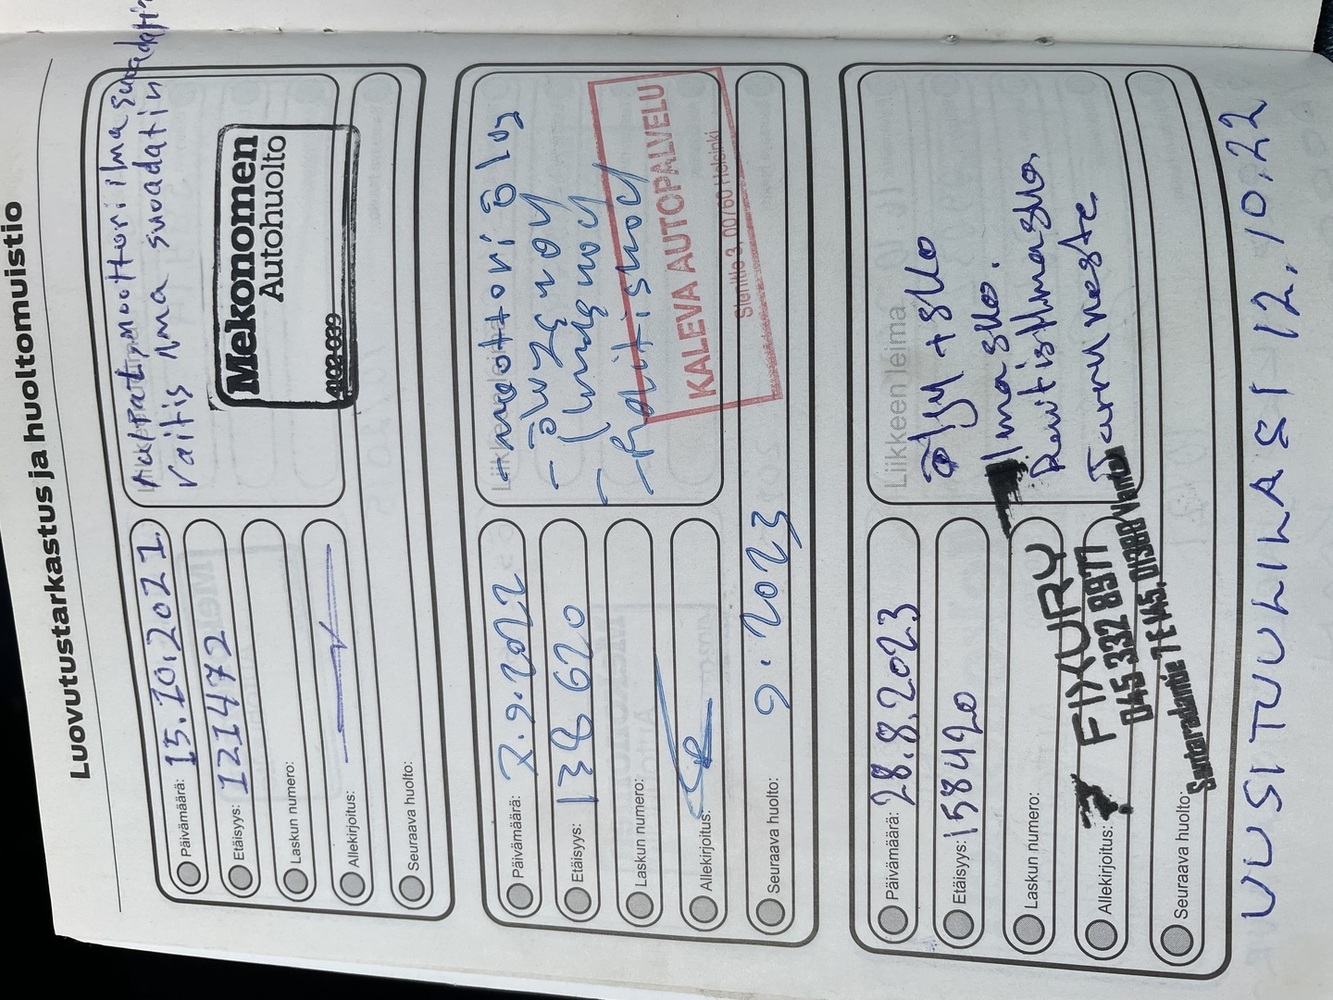 Luovutustarkastus ja huoltomuistio
Päivämäärä: 15.10.2021
Etäisyys: 121472
Laskun numero:
Allekirjoitus:
Seuraava huolto:
moottori ilma suodatin
raitis ilma suodatin
Mekonomen
Autohuolto
Päivämäärä: 7.9.2022
Etäisyys: 138620
Laskun numero:
Allekirjoitus:
Seuraava huolto: 9.2023
- moottori öljy
KALEVA AUTOPALVELU
00760 Helsinki
Päivämäärä: 28.8.2023
Etäisyys: 158420
Laskun numero:
Allekirjoitus:
Seuraava huolto:
Liikkeen leima
öljy + suo
Ilmasuo.
Raitisilmasuo.
Jarruneste
FIXURY
045 332 8977
Santaradantie 7 E 145, 01380 Vantaa
UUSI TUULILASI 12.10.22